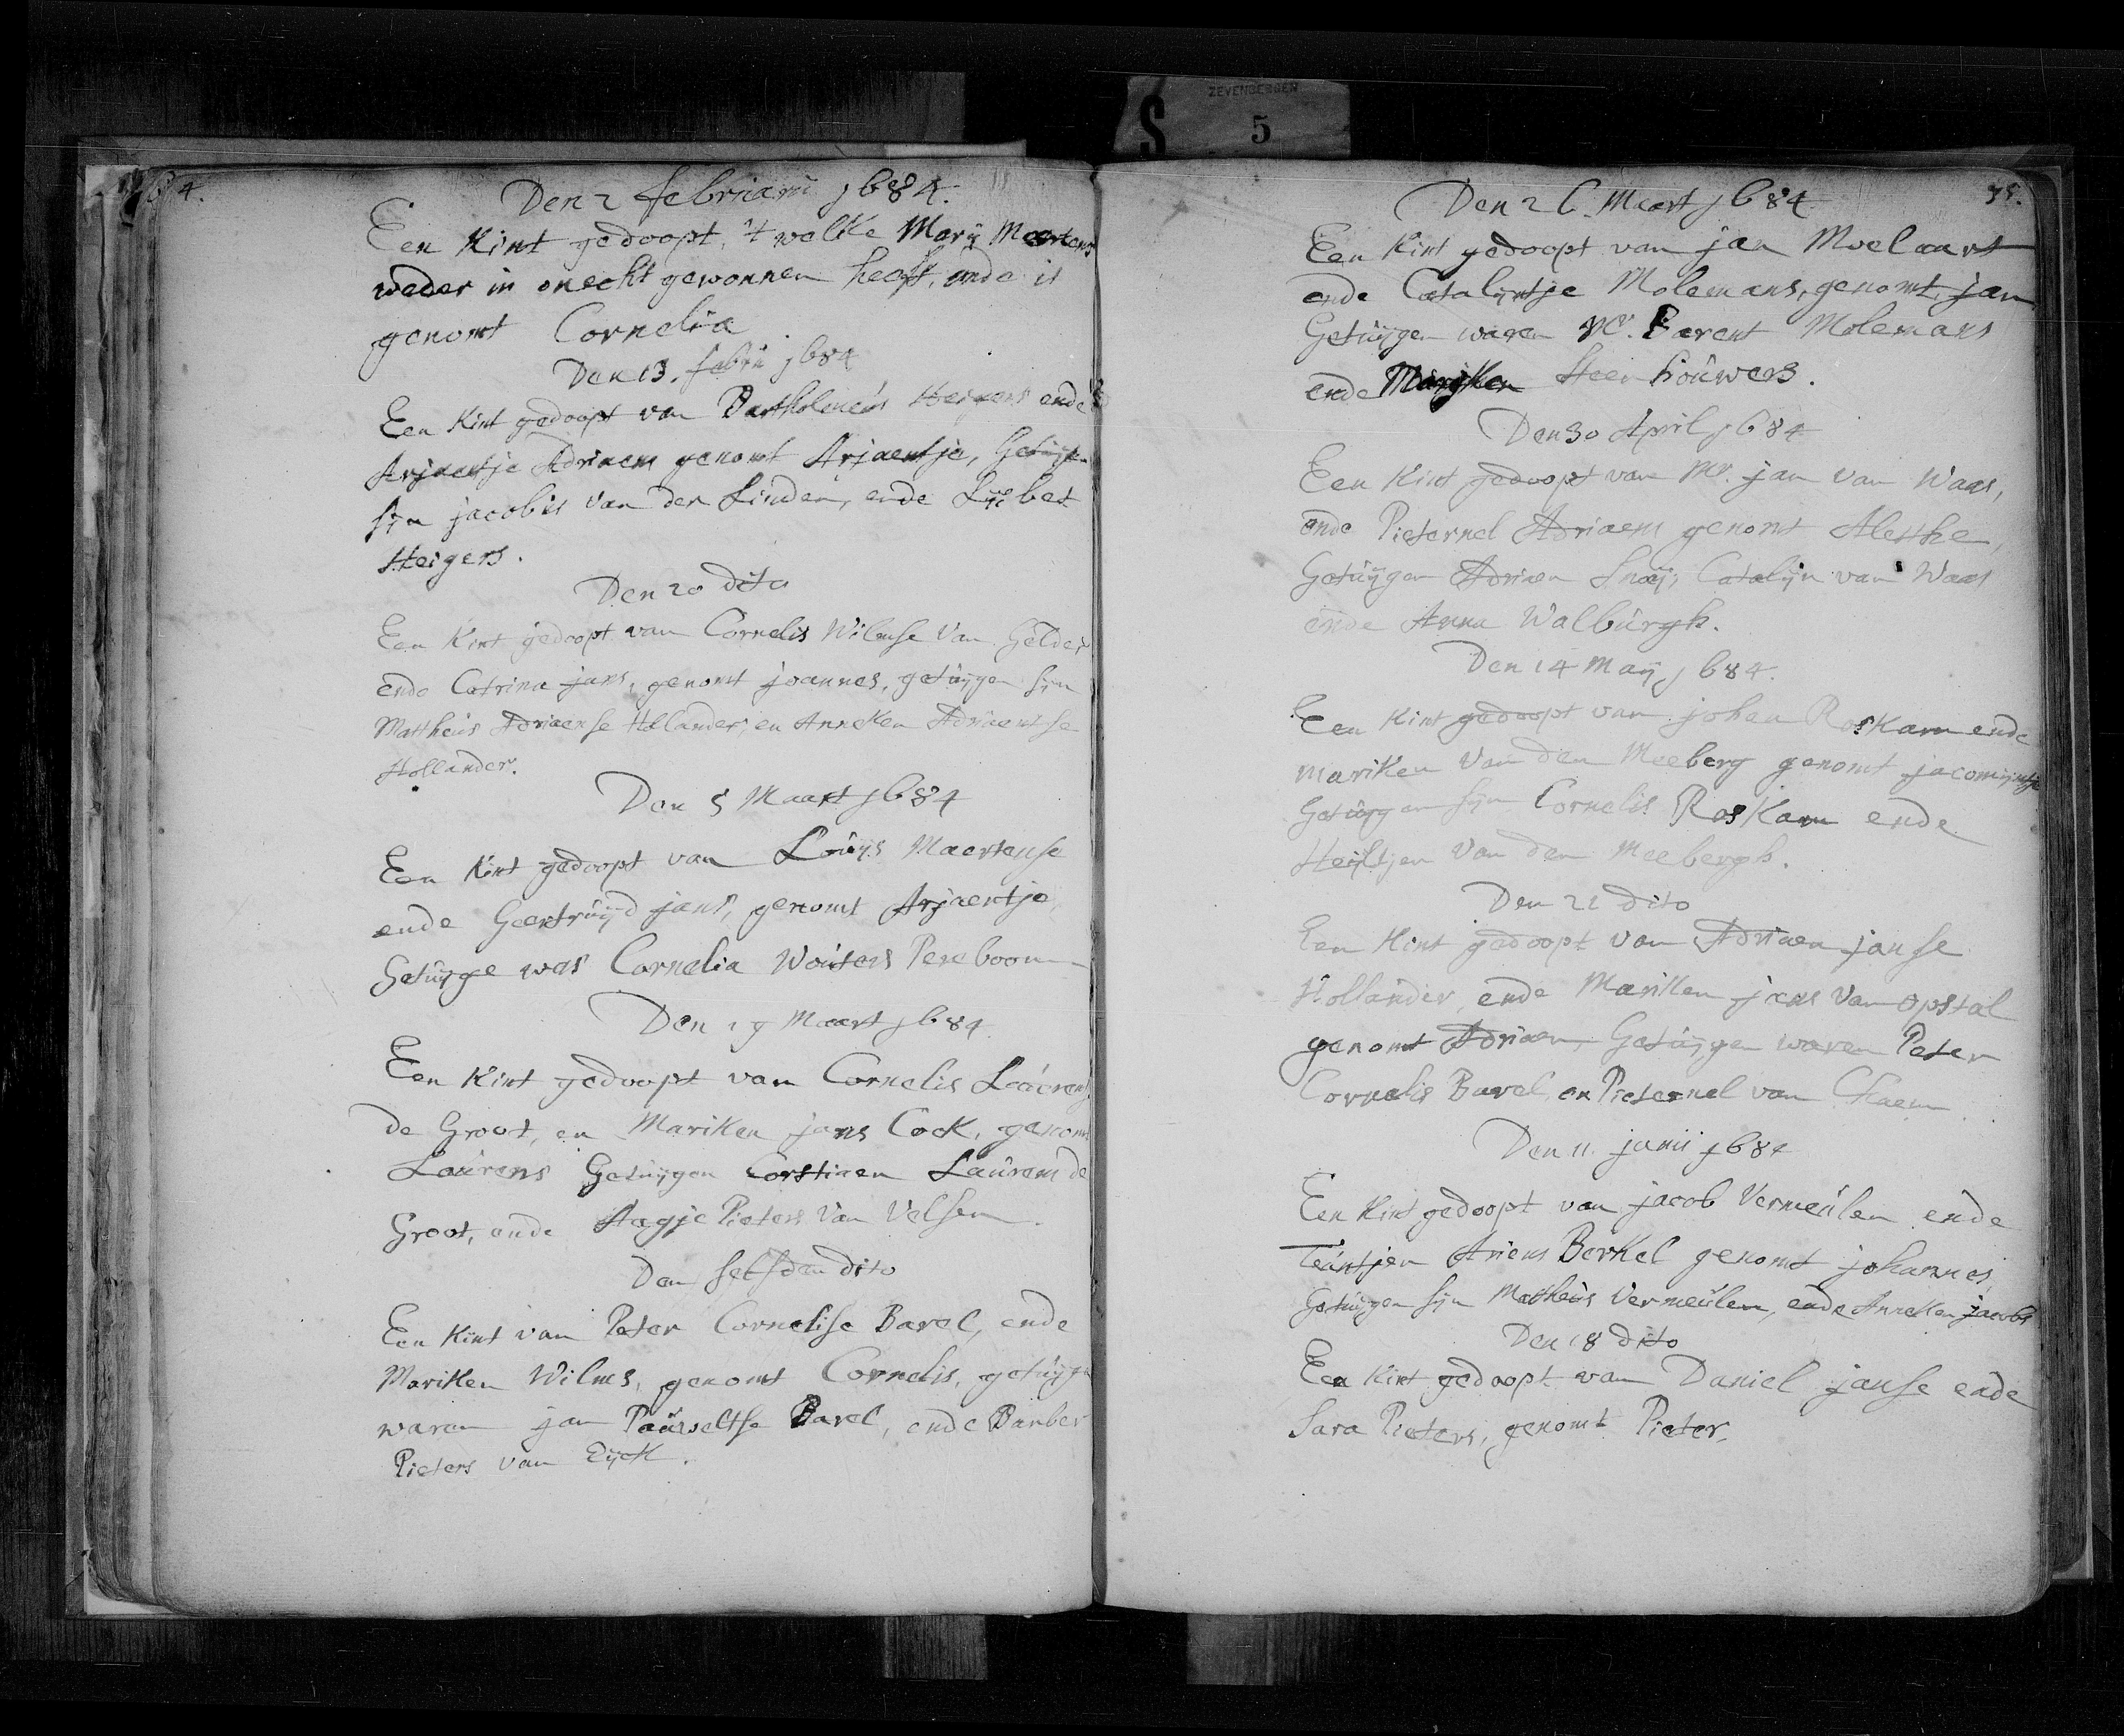 ZEVENBERGEN
S 5
Den 2 februarii j684.
Een Kint gedoopt, 't welke Marÿ Maertens
weder in onecht gewonnen heeft, ende is
genomt Cornelia
Den 13. febru j684
Een Kint gedoopt van Bartholmeús Steigers ende
Arjaentje Adriaens genomt Arjaentje, Getúÿgen
sÿn jacobús van der Linden, ende Lÿsbet
Steigers.
Den 20 dito
Een Kint gedoopt van Cornelis Wilmse van Gelder
ende Catrina jans, genomt joannes, getúÿgen sÿn
Mattheús Adriaense Hollander, en Anneken Adriaentse
Hollander.
Den 5 Maart j684
Een Kint gedoopt van Loúÿs Maertense
ende Geertrúÿd jans, genomt Arjaentje,
Getúÿge was Cornelia Woúters Pereboom
Den 19 Maart j684
Een Kint gedoopt van Cornelis Laúrens
de Groot, en Mariken jans Cock, genomt
Laúrens Getúÿgen Corstiaen Laúrens de
Groot, ende Aagje Pieters van Velsen.
Den selfden dito
Een Kint van Peter Cornelise Bavel, ende
Mariken Wilms, genomt Cornelis, getúÿgen
waren jan Paúweltse Bavel, ende Barber
Pieters van Eÿck.
35.
Den 26. Maart j684
Een Kint gedoopt van jan Moelaart
ende Catalÿntje Molemans, genomt, jan
Getúÿgen waren Mr. Barent Molemans
ende Marÿken Steenhoúwers.
Den 30 April j684
Een Kint gedoopt van Mr. jan van Waas,
ende Pieternel Adriaens genomt Alethe,
Getúÿgen Adriaen Snoÿ, Catalÿn van Waas
ende Anna Walbúrgh.
Den 14 Maÿ j684.
Een Kint gedoopt van johan Roskam ende
mariken van den Meeberg genomt jacomÿntje
Getúÿgen sÿn Cornelis Roskam ende
Heÿltjen van den Meebergh.
Den 21 dito
Een Kint gedoopt van Adriaen janse
Hollander, ende Mariken jans van opstal
genomt Adriaen, Getúÿgen waren Peter
Cornelis Bavel, en Pieternel van Chaem.
Den 11. junii j684
Een Kint gedoopt van jacob Vermeúlen ende
Teúntjen Ariens Berkel genomt johannes,
Getúÿgen sÿn Matheús Vermeúlen, ende Anneken jacobs
Den 18 dito
Een Kint gedoopt van Daniel janse ende
Sara Pieters, genomt Pieter.